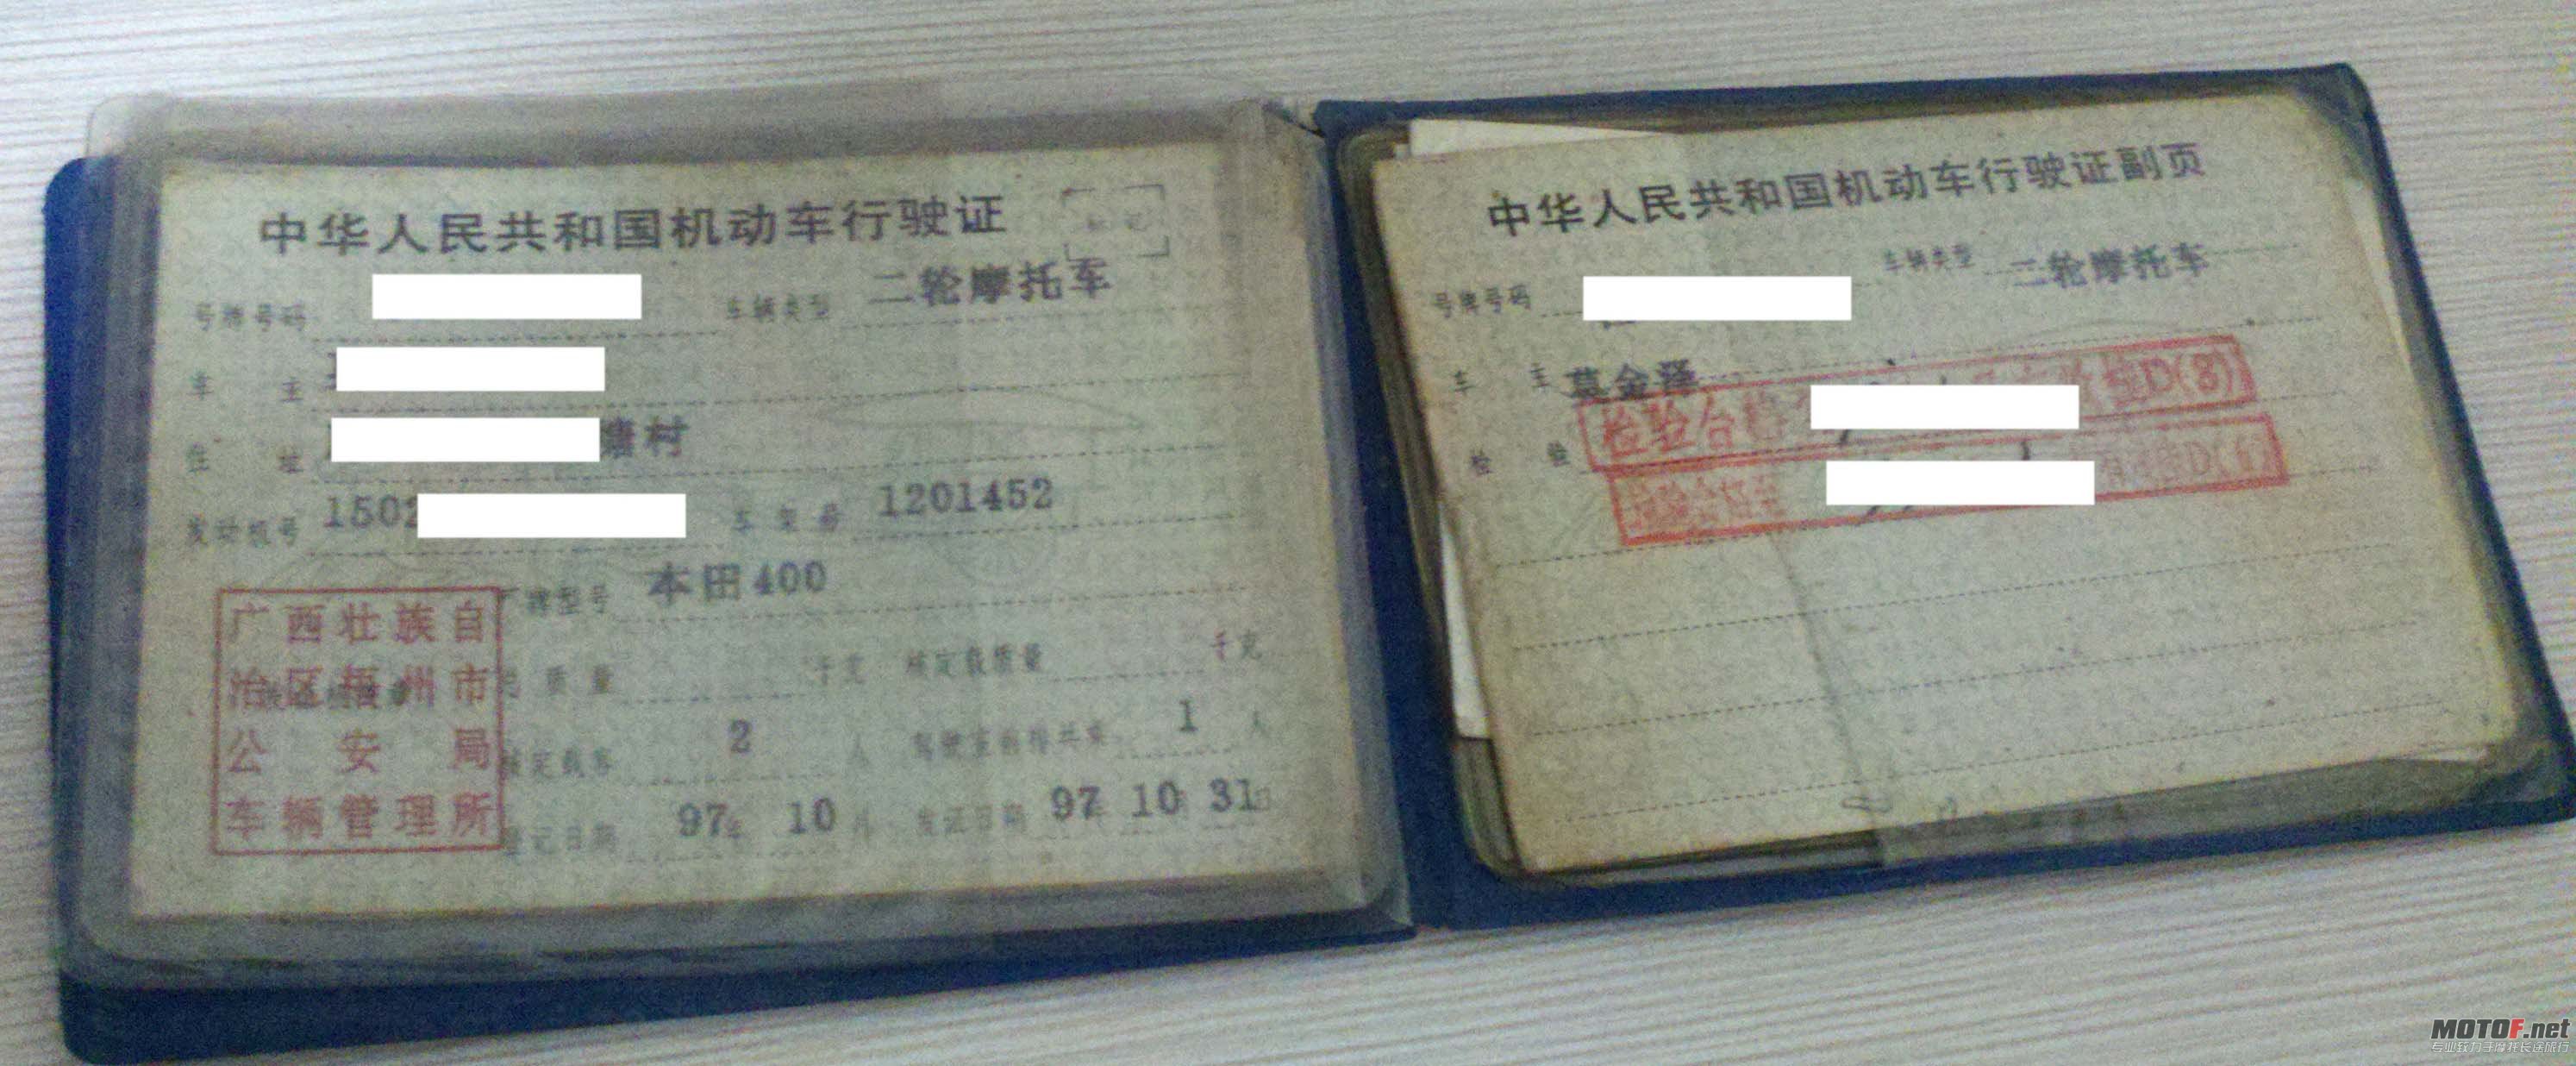 中华人民共和国机动车行驶证
号牌号码 车辆类型 二轮摩托车
车 主
住 址 塘村
发动机号 1502 车架号 1201452
厂牌型号 本田400
总质量 千克 核定载质量 千克
核定载客 2 人 驾驶室前排共乘 1 人
登记日期 97年 10 月 发证日期 97 10 31日
广西壮族自
治区梧州市
公安局
车辆管理所
中华人民共和国机动车行驶证副页
号牌号码 车辆类型 二轮摩托车
车 主 莫金泽
检 验 检验合格 D(8)
检验合格 D(6)
MOTOF.net
专业致力于摩托长途旅行